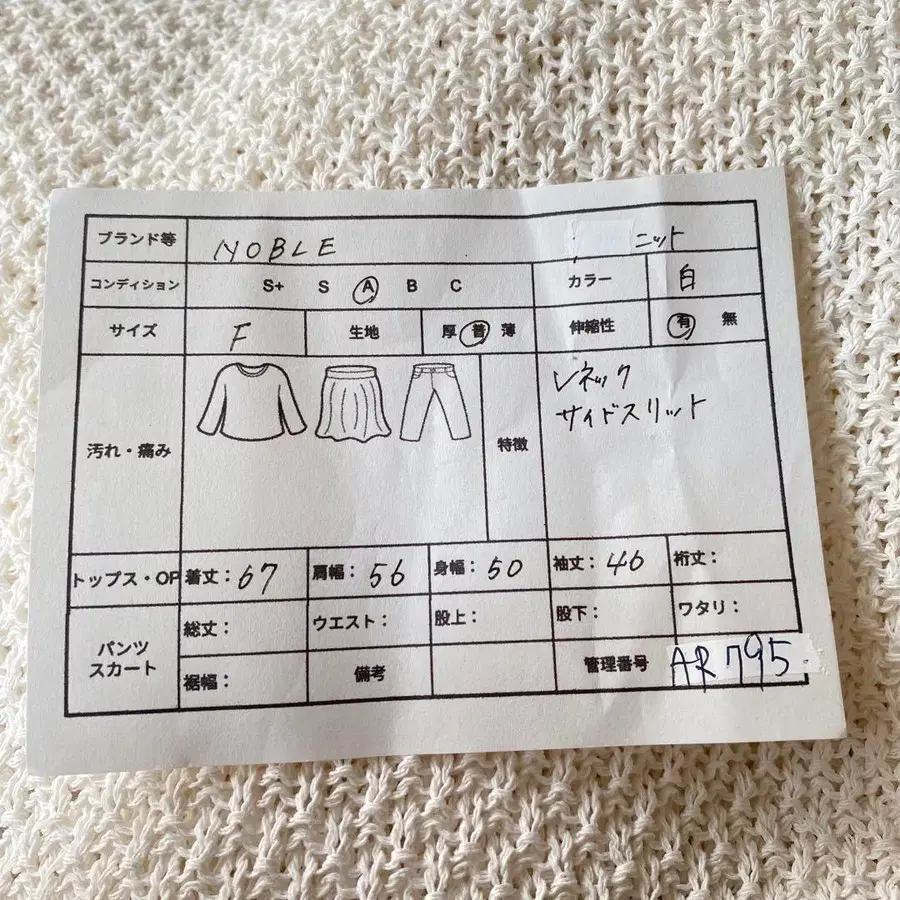 ブランド等 NOBLE ニット
コンディション S+ S A B C カラー 白
サイズ F 生地 厚 普 薄 伸縮性 有 無
汚れ・痛み 特徴 Vネック
サイドスリット
トップス・OP 着丈：67 肩幅：56 身幅：50 袖丈：46 裄丈：
パンツ スカート 総丈： ウエスト： 股上： 股下： ワタリ：
裾幅： 備考 管理番号 AR795